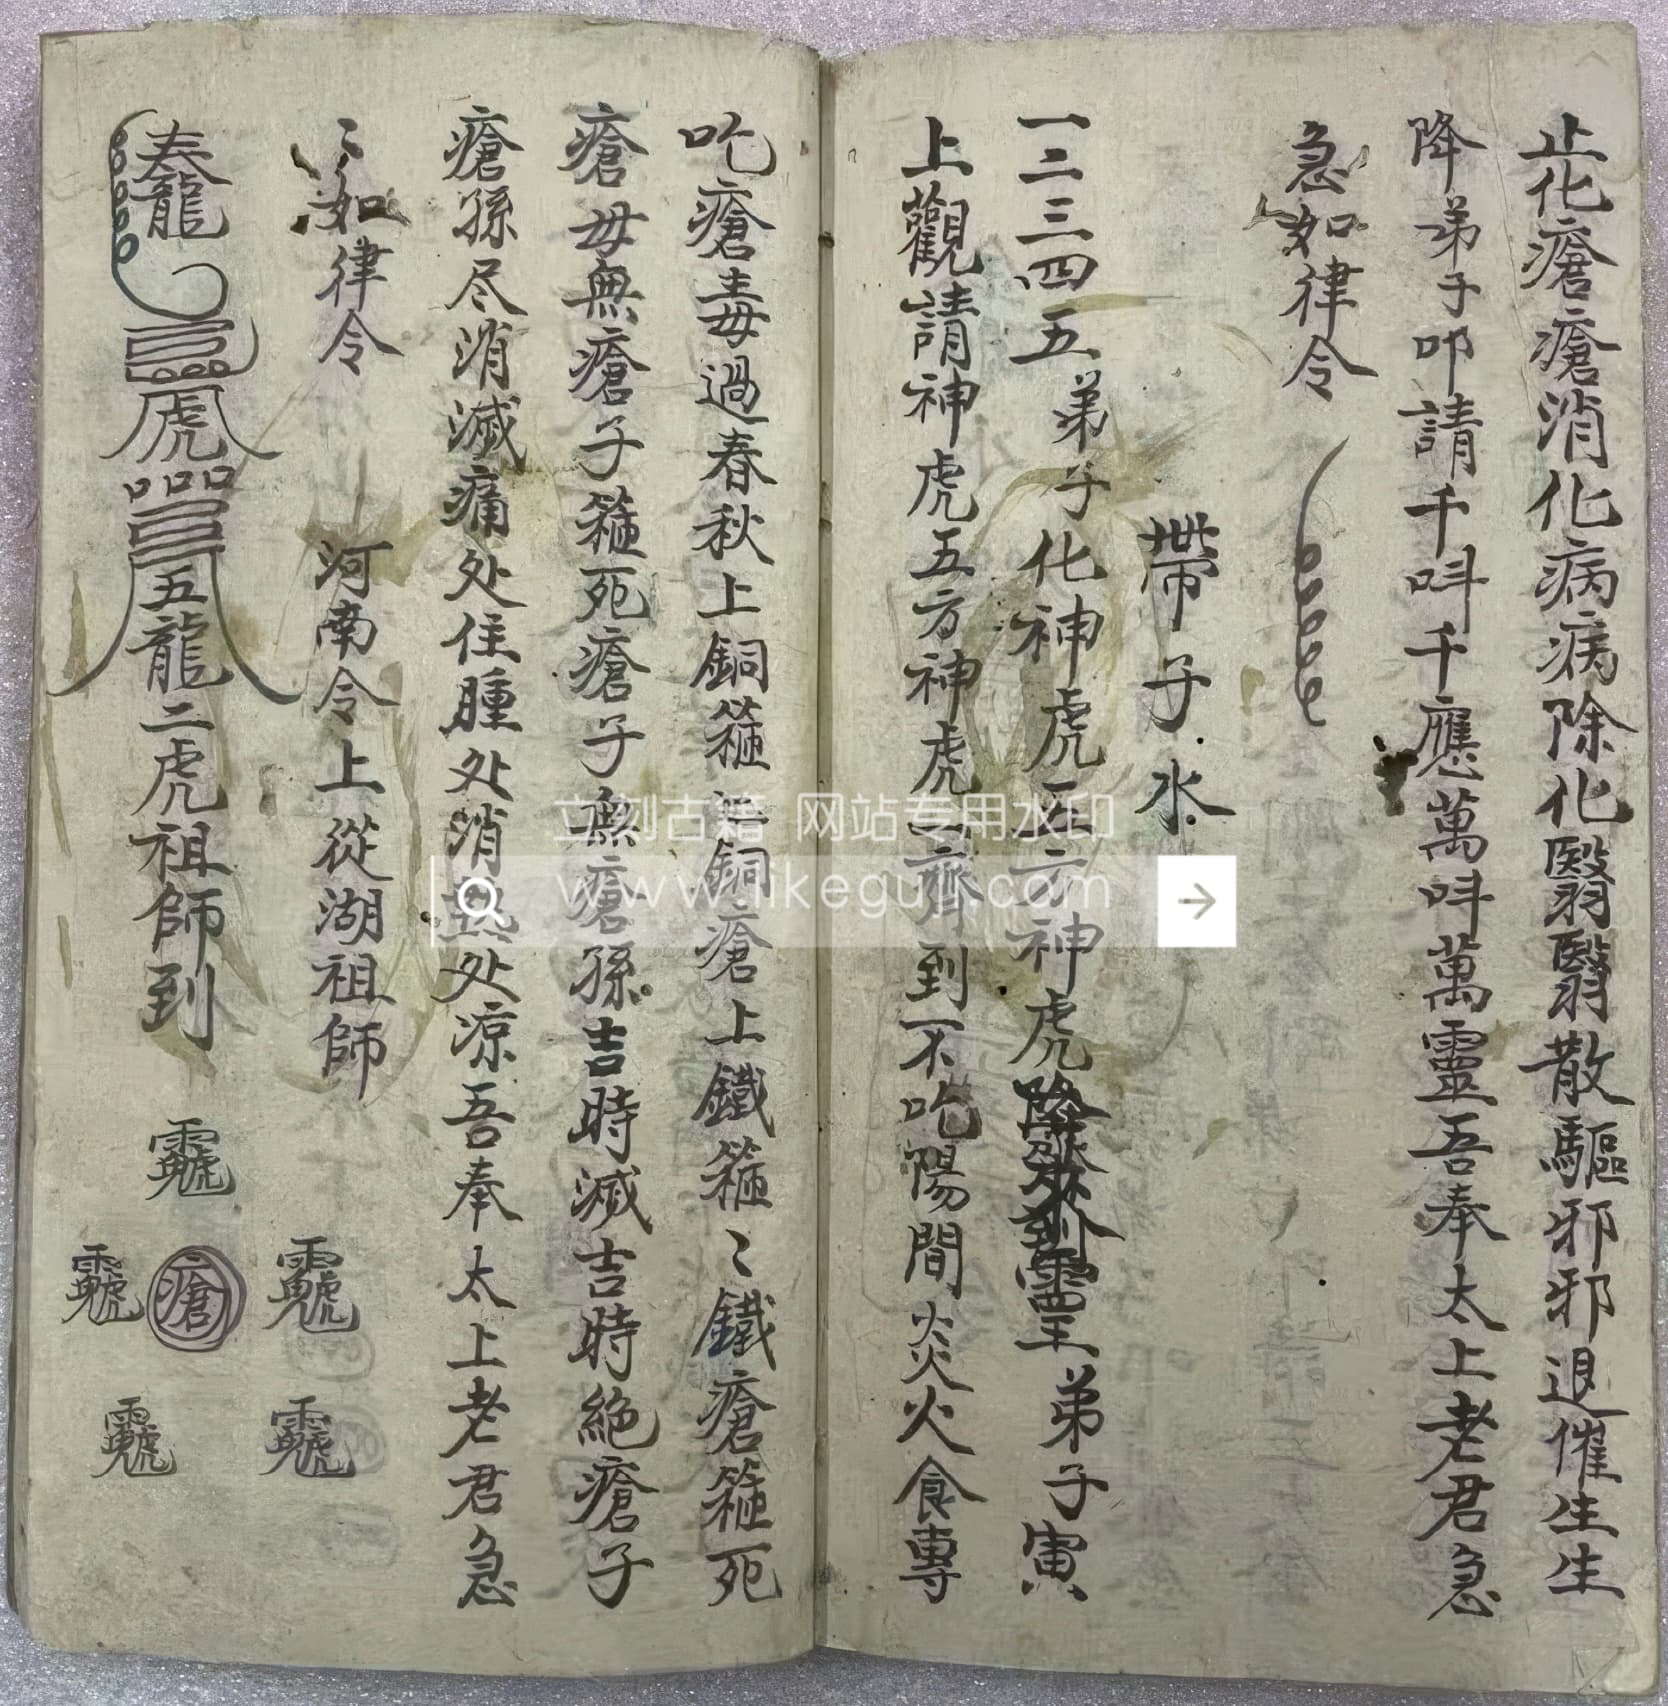 止化瘡瘡消化病病除化翳翳散驅邪邪退催生生
降弟子叩請千叫千應萬叫萬靈吾奉太上老君急
急如律令
帶子水
一二三四五弟子化神虎五方神虎靈弟子寅
上觀請神虎五方神虎一齊到不吃陽間炎火食專
吃瘡毒過春秋上銅箍銅瘡上鐵箍〻鐵瘡箍死
瘡母無瘡子箍死瘡子無瘡孫吉時滅吉時絕瘡子
瘡孫尽消滅痛处住腫处消处涼吾奉太上老君急
〻如律令 河南令上從湖祖師
龍
虎
五龍二虎祖師到
瘡
立刻古籍 网站专用水印
www.likeguji.com